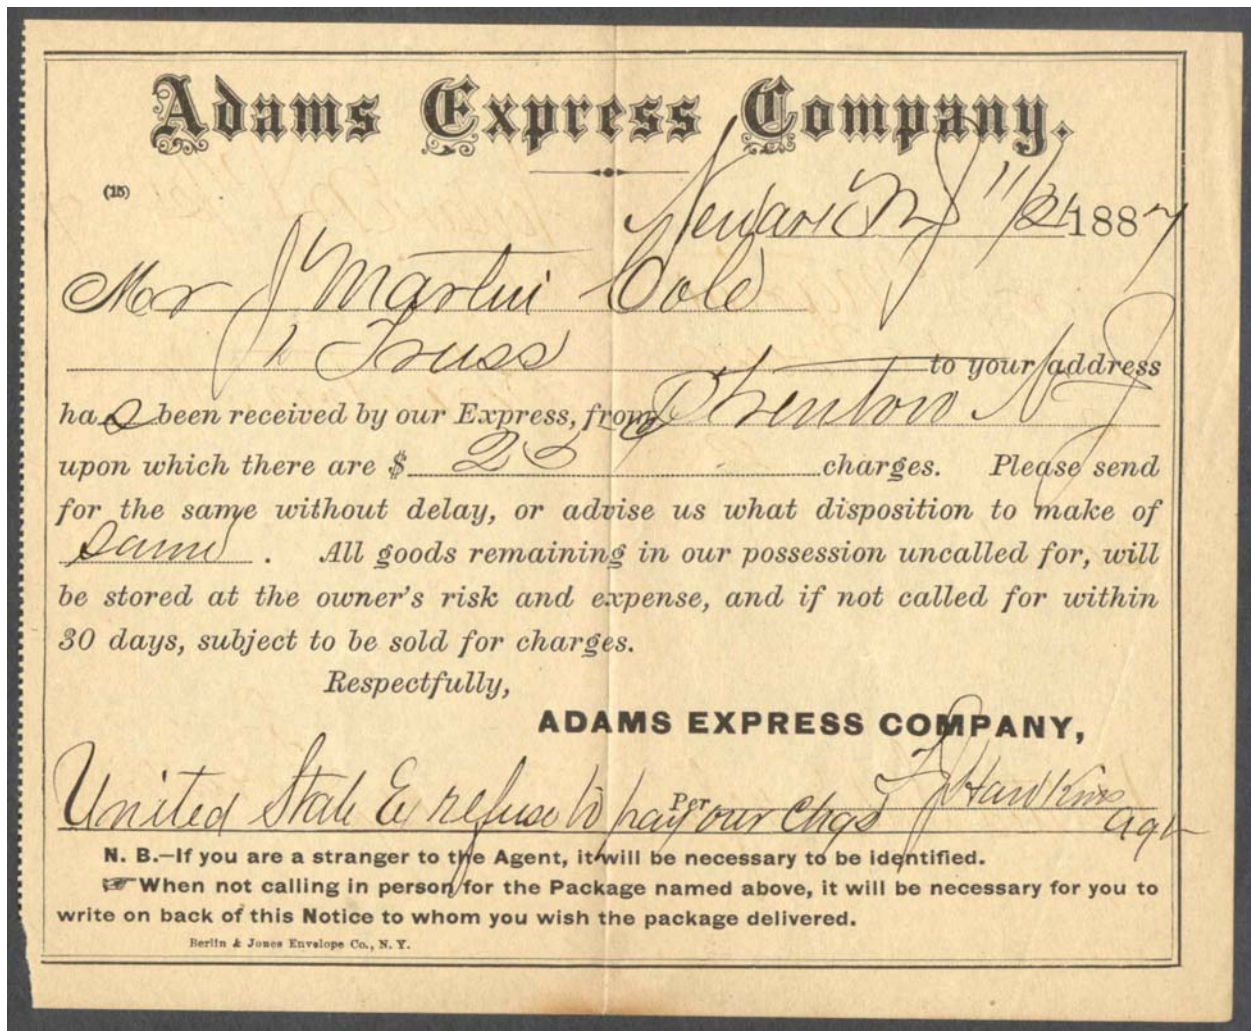 Adams Express Company.
(15)
Newark NJ 11/21 1887
Mr J Martin Cole
1 Truss to your address
has been received by our Express, from Trenton NJ
upon which there are $ 25 charges. Please send
for the same without delay, or advise us what disposition to make of
same . All goods remaining in our possession uncalled for, will
be stored at the owner's risk and expense, and if not called for within
30 days, subject to be sold for charges.
Respectfully,
ADAMS EXPRESS COMPANY,
United State Ex refuse to pay our Chgs Per Hawkins
Agt
N. B.—If you are a stranger to the Agent, it will be necessary to be identified.
☞When not calling in person for the Package named above, it will be necessary for you to
write on back of this Notice to whom you wish the package delivered.
Berlin & Jones Envelope Co., N. Y.